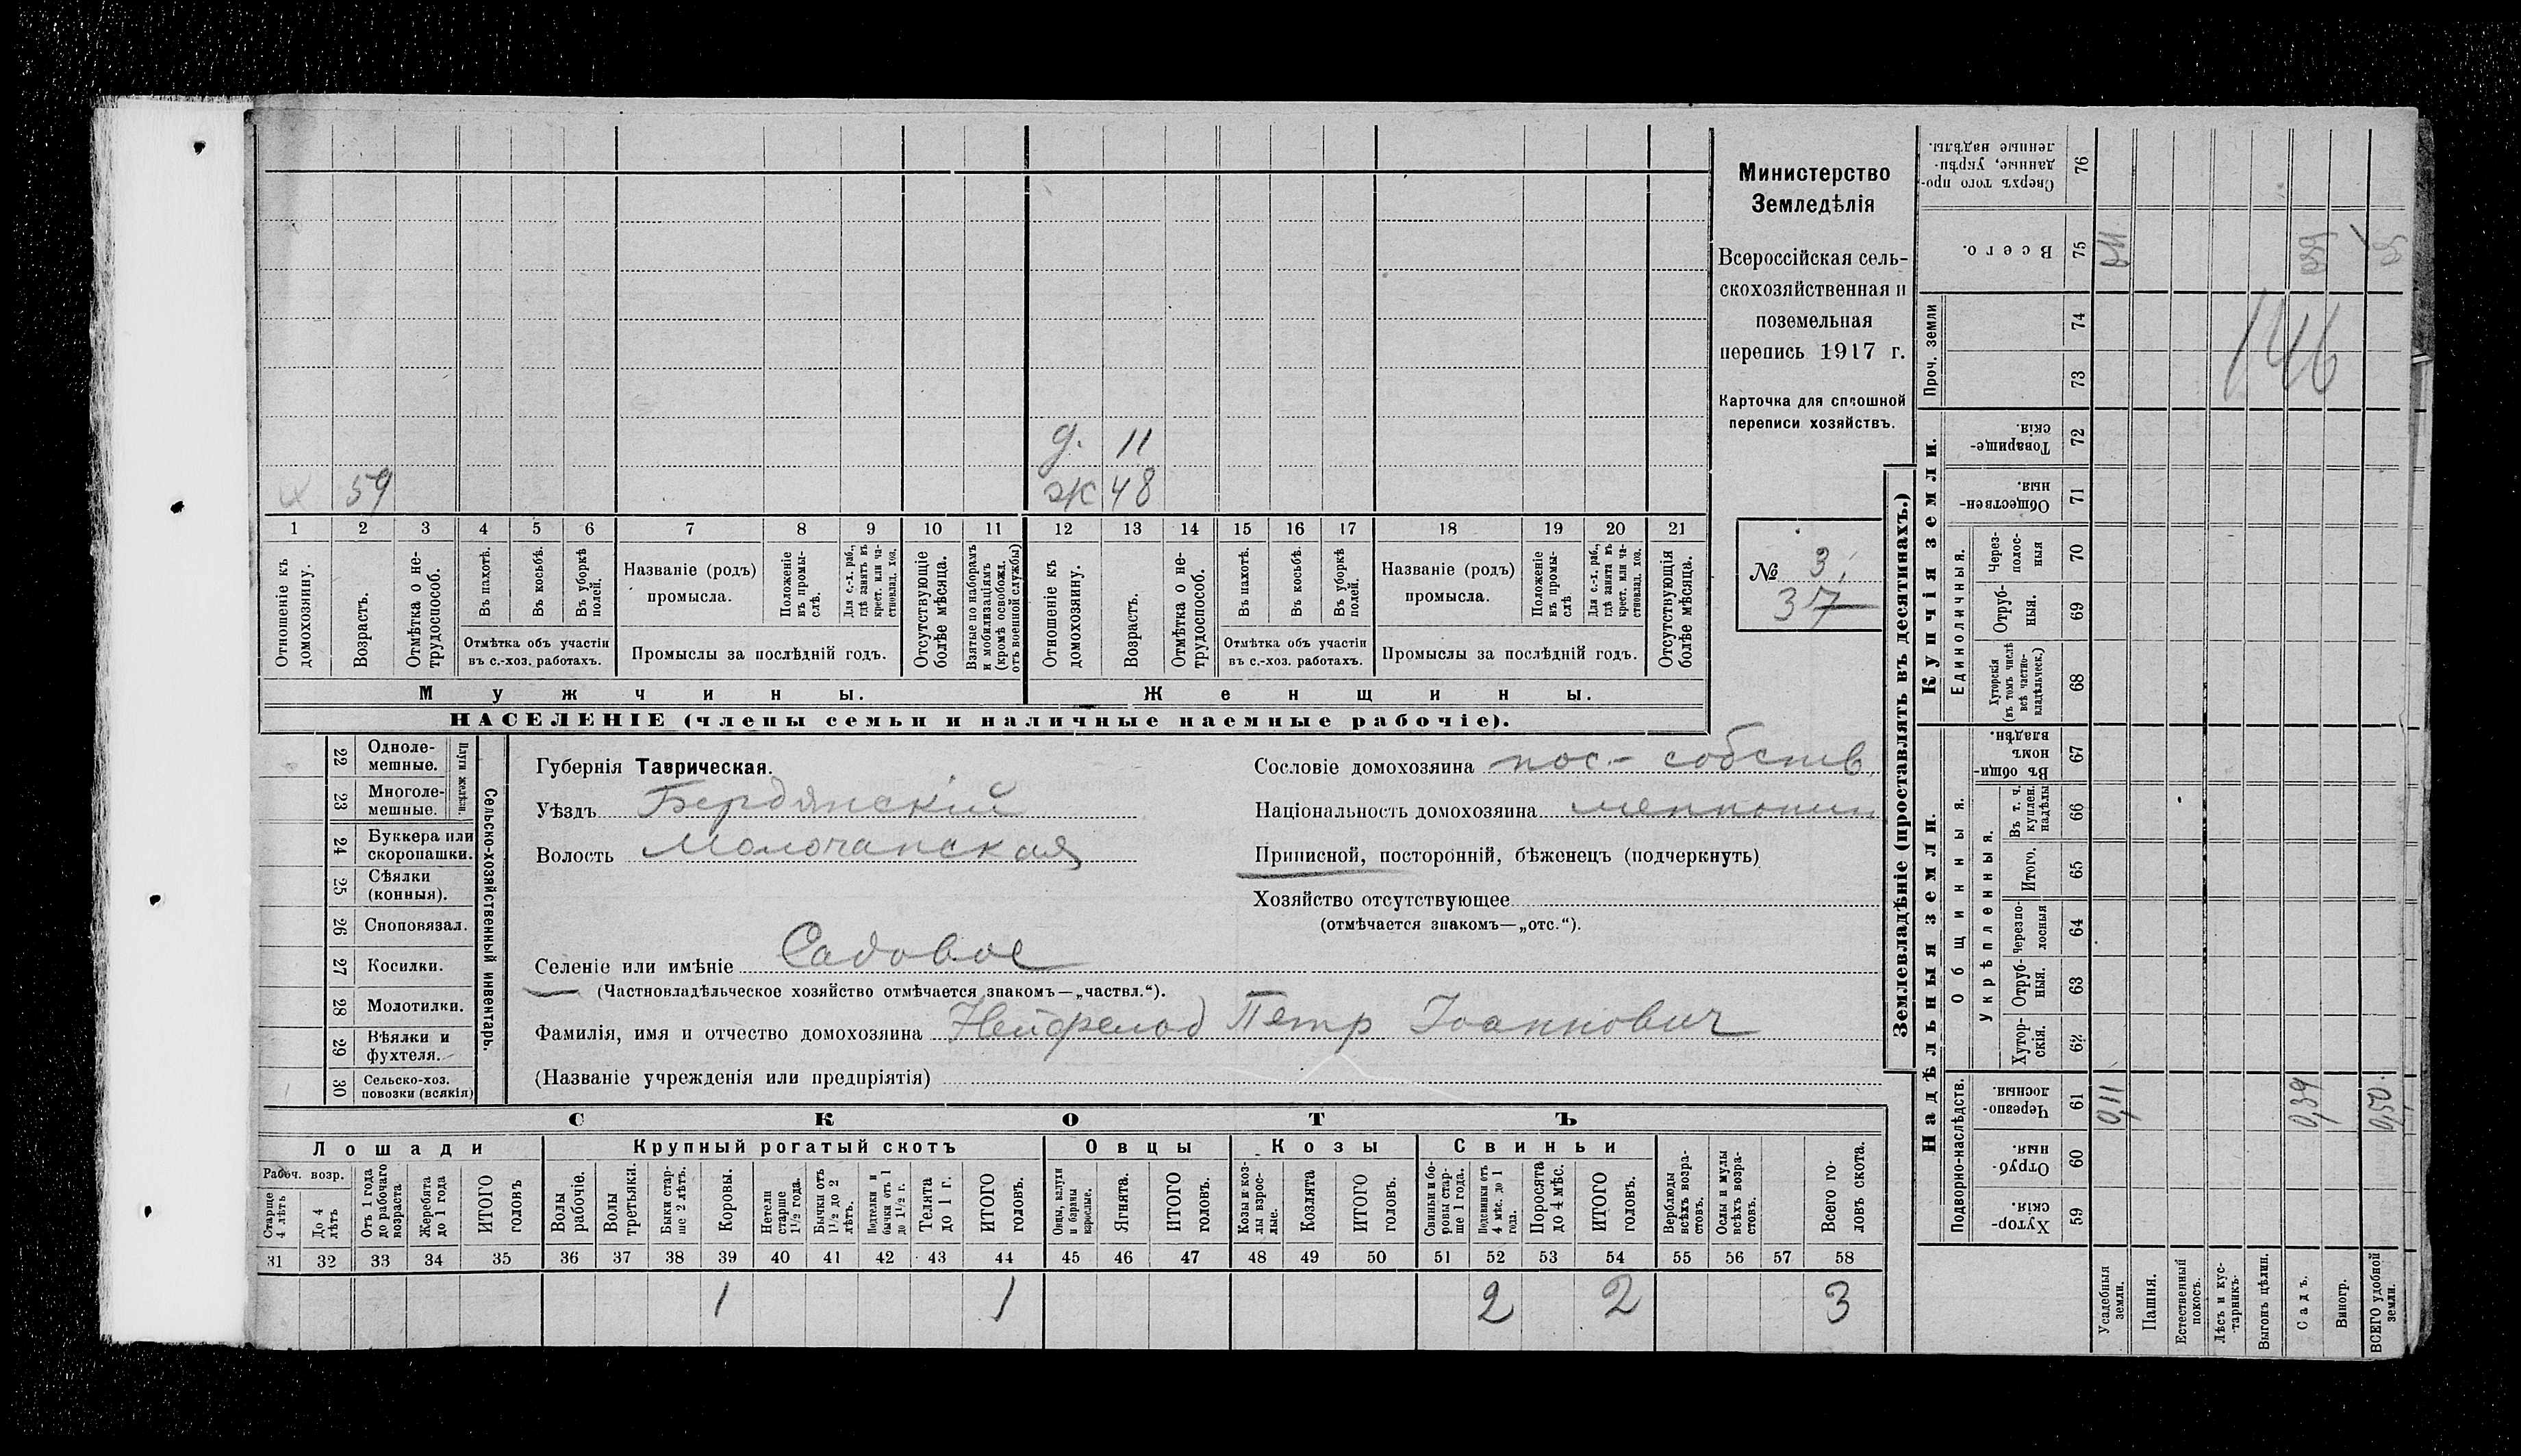 Министерство
Земледѣлія
Всероссійская сель-
скохозяйственная и
поземельная
перепись 1917 г.
Карточка для сплошной
переписи хозяйствъ.
№ 3.
37
д. 11
х 59
ж 48
1 2 3 4 5 6 7 8 9 10 11 12 13 14 15 16 17 18 19 20 21
Отношеніе къ домохозяину.
Возрастъ.
Отмѣтка о не-трудоспособ.
Въ пахотѣ.
Въ косьбѣ.
Въ уборкѣ полей.
Отмѣтка объ участіи
въ с.-хоз. работахъ.
Названіе (родъ)
промысла.
Положеніе въ промы-слѣ.
Для с.-х. раб., гдѣ занятъ въ крест. или ча-стновлад. хоз.
Промыслы за послѣдній годъ.
Отсутствующіе болѣе мѣсяца.
Взятые по наборамъ и мобилизаціямъ (кромѣ освобожд. отъ военной службы)
Отношеніе къ домохозяину.
Возрастъ.
Отмѣтка о не-трудоспособ.
Въ пахотѣ.
Въ косьбѣ.
Въ уборкѣ полей.
Отмѣтка объ участіи
въ с.-хоз. работахъ.
Названіе (родъ)
промысла.
Положеніе въ промы-слѣ
Для с.-х. раб., гдѣ занята въ крест. или ча-стновлад. хоз.
Промыслы за послѣдній годъ.
Отсутствующія болѣе мѣсяца.
Мужчины.
Женщины.
НАСЕЛЕНІЕ (члены семьи и наличные наемные рабочіе).
Сельско-хозяйственный инвентарь.
Плуги желѣзн.
22 Одноле-мешные.
23 Многоле-мешные.
24 Буккера или скоропашки.
25 Сѣялки (конныя).
26 Сноповязал.
27 Косилки.
28 Молотилки.
29 Вѣялки и фухтеля.
30 Сельско-хоз. повозки (всякія)
Губернія Таврическая.
Уѣздъ Бердянскій
Волость Молочанская
Селеніе или имѣніе Садовое
(Частновладѣльческое хозяйство отмѣчается знакомъ—„частвл.“).
Фамилія, имя и отчество домохозяина Нейфельд Петр Іоаннович
(Названіе учрежденія или предпріятія)
Сословіе домохозяина пос.- собств.
Національность домохозяина меннонит
Приписной, посторонній, бѣженецъ (подчеркнуть)
Хозяйство отсутствующее
(отмѣчается знакомъ—„отс.“).
СКОТЪ
Лошади
Крупный рогатый скотъ
Овцы
Козы
Свиньи
Рабоч. возр.
Старше 4 лѣтъ
До 4 лѣтъ
Отъ 1 года до рабочаго возраста
Жеребята до 1 года
ИТОГО головъ
Волы рабочіе.
Волы третьяки.
Быки стар-ше 2 лѣтъ.
Коровы.
Нетели старше 1½ года.
Бычки отъ 1½ до 2 лѣтъ.
Подтелки и бычки отъ 1 до 1½ г.
Телята до 1 г.
ИТОГО головъ.
Овцы, валухи и бараны взрослые.
Ягнята.
ИТОГО головъ.
Козы и коз-лы взрос-лые.
Козлята
ИТОГО головъ.
Свиньи и бо-ровы стар-ше 1 года.
Подсвинки отъ 4 мѣс. до 1 года.
Поросята до 4 мѣс.
ИТОГО головъ.
Верблюды всѣхъ возра-стовъ.
Ослы и мулы всѣхъ возра-стовъ.
Всего го-ловъ скота.
31 32 33 34 35 36 37 38 39 40 41 42 43 44 45 46 47 48 49 50 51 52 53 54 55 56 57 58
1 1 2 2 3
Землевладѣніе (проставлять въ десятинахъ.)
Надѣльныя земли.
Купчія земли.
Проч. земли
Подворно-наслѣдств.
Общинныя.
Укрѣпленныя.
Единоличныя.
Сверхъ того про-данные, укрѣп-ленные надѣлы. 76
Всего. 75
74
73
Товарище-скія. 72
Обществен-ныя. 71
Через-полос-ныя 70
Отруб-ныя. 69
Хуторскія (въ томъ числѣ всѣ частно-владѣльческ.) 68
Въ общи-номъ владѣн. 67
Въ т. ч. куплен. надѣлы 66
Итого. 65
Черезпо-лосныя 64
Отруб-ныя. 63
Хутор-скія. 62
Черезпо-лосныя. 61
Отруб-ныя. 60
Хутор-скія. 59
146
0,11
0,39
0,50.
Усадебныя земли.
Пашня.
Естественный покосъ.
Лѣсъ и кус-тарникъ.
Выгонъ цѣлин.
Садъ.
Виногр.
ВСЕГО удобной земли.